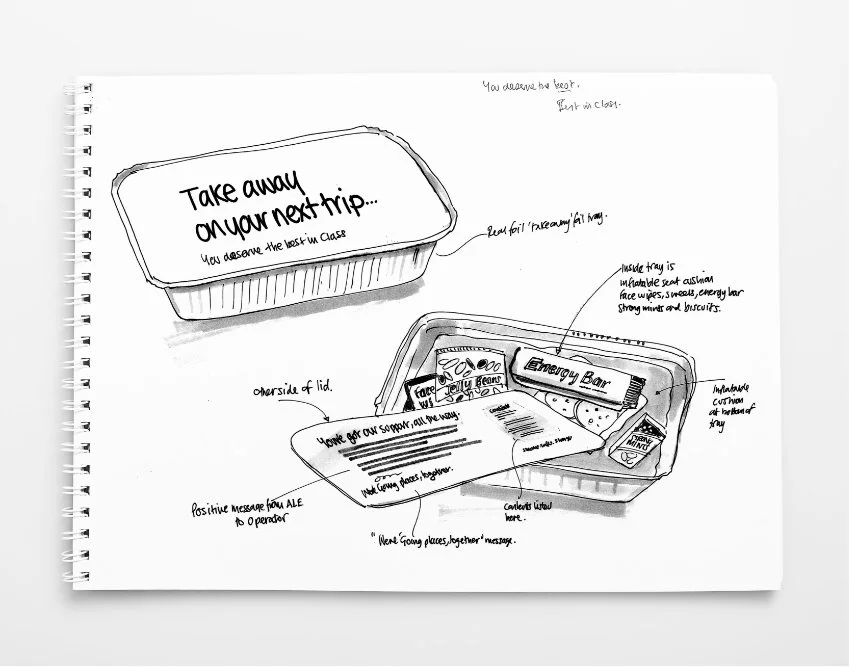 You deserve the best.
Best in Class.
Take away
on your next trip...
You deserve the best in Class
Real foil 'takeaway' foil tray.
Inside tray is
inflatable seat cushion
Face wipes, sweets, energy bar
strong mints and biscuits.
Energy Bar
Jelly Beans
Face
Wi
Inflatable
cushion
at bottom of
tray
STRONG
MINTS
Otherside of lid.
You've got our support, all the way.
Contents
Going places, together.
Positive message from ALE
to operator
Contents listed
here.
"We're 'Going places, together' message.